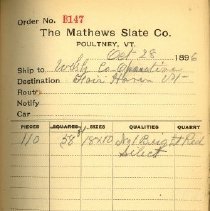 Order No. B147
The Mathews Slate Co.
POULTNEY, VT.
Oct 28 1896
Ship to Co-Operative
Destination Fair Haven Vt
Route
Notify
Car
PIECES SQUARES SIZES QUALITIES QUARRY
110 58 18x10 Bright Red
Select